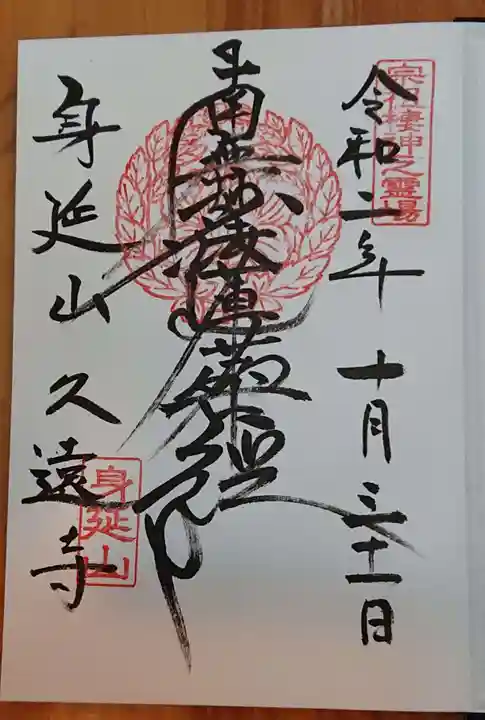 宗祖棲神之霊場
令和二年 十月三十一日
南無妙法蓮華経
身延山 久遠寺
身延山